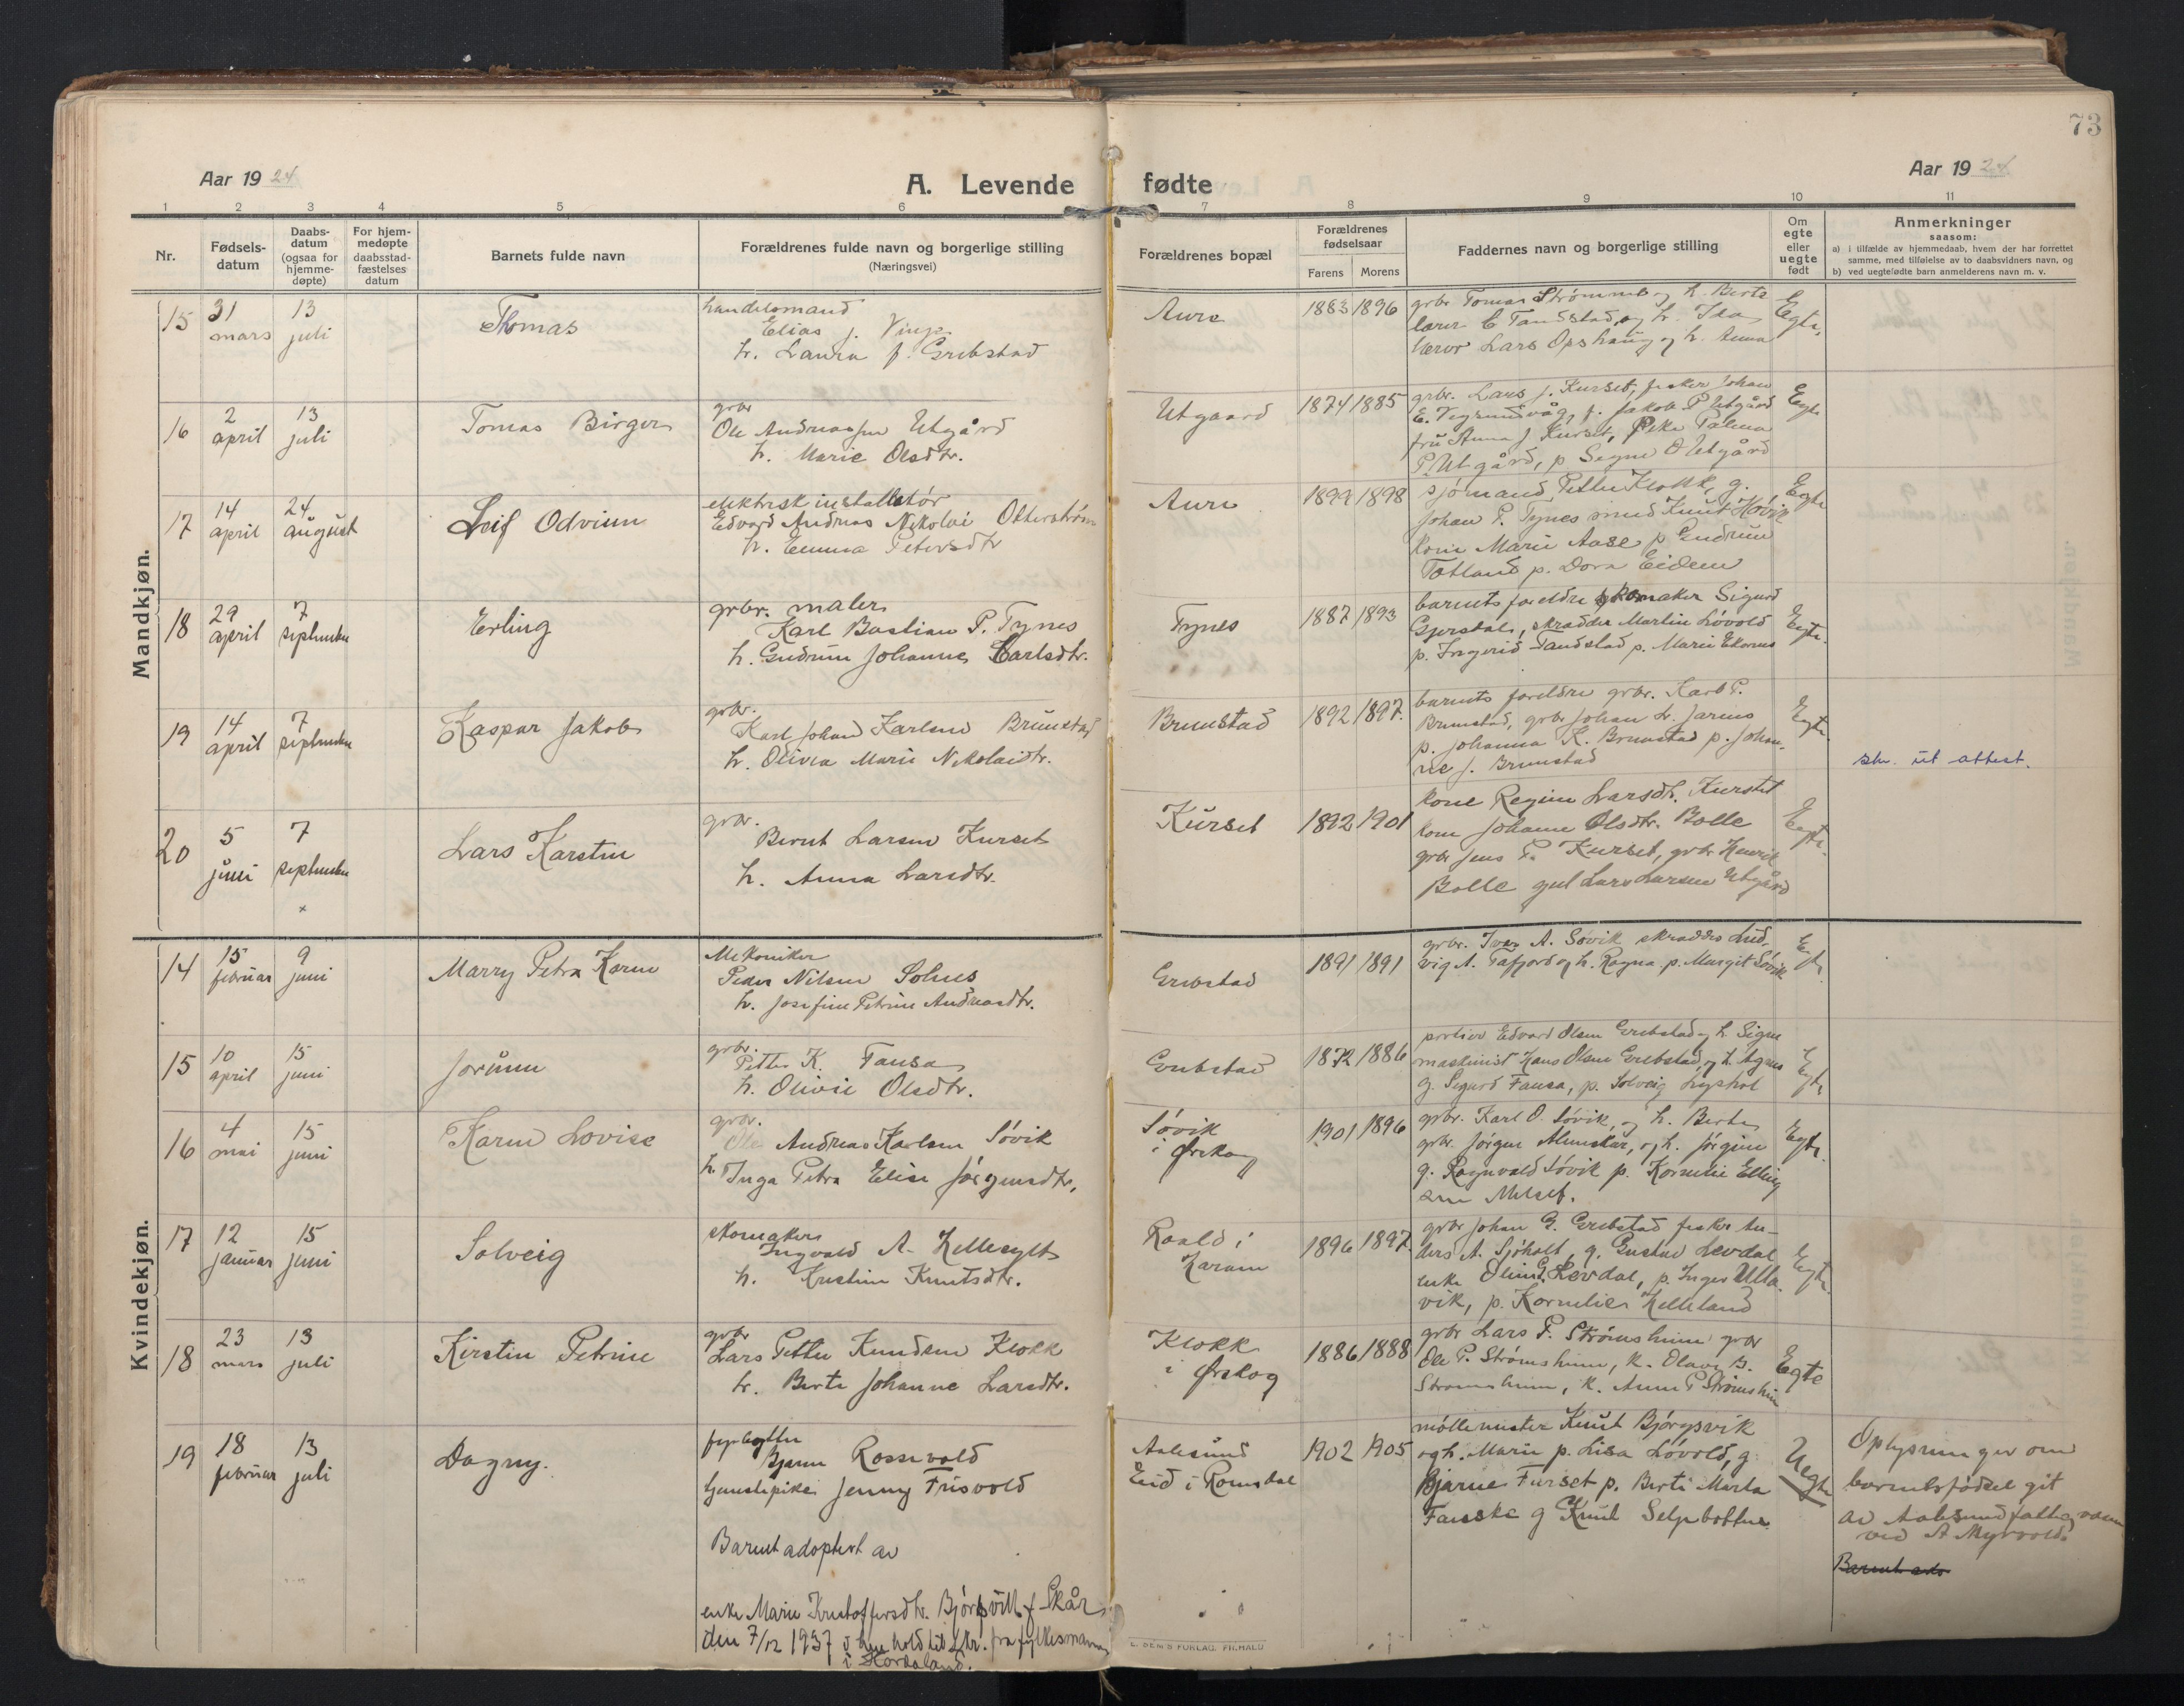 73
Aar 1924
A. Levende fødte
Aar 1924
1 2 3 4 5 6 7 8 9 10 11
Nr.
Fødsels-
datum
Daabs-
datum
(ogsaa for
hjemme-
døpte)
For hjem-
medøpte
daabsstad-
fæstelses
datum
Barnets fulde navn
Forældrenes fulde navn og borgerlige stilling
(Næringsvei)
Forældrenes bopæl
Forældrenes
fødselsaar
Farens Morens
Faddernes navn og borgerlige stilling
Om
egte
eller
uegte
født
Anmerkninger
saasom:
a) i tilfælde av hjemmedaab, hvem der har forrettet
samme, med tilføielse av to daabsvidners navn, og
b) ved uegtefødte barn anmelderens navn m. v.
Mandkjøn.
15
31
mars
13
juli
Thomas
handelsmand
Elias J.
h. Laura f. Grebstad
Aure
1883 1896
grbr. Tomas Strømme og h. Berte
lærer Tandstad, og h. Ida
Lars Opshaug og h. Anna
Egte.
16
2
april
13
juli
Tomas Birger
grbr
Ole Andreassen Utgård
h. Marie Olsdtr.
Utgaard
1874 1885
grbr. Lars J. Kurset, fisker Johan
E. Vegsundvåg, f. Jakob P Utgård
fru Anna J. Kurset, Pike Palma
P. Utgård, p Signe O Utgård
Egte
17
14
april
24
august
Leif Odvinn
elektrisk installatør
Edvard Andreas Nikolai Otterstrøm
h. Emma Petersdtr
Aure
1899 1898
sjømand Petter Klokk, g.
Johan P. Tynes smed Knut Hovik
kone Marie Aase p Gudrun
Totland p. Dora Eidem
Egte
18
29
april
7
september
Erling
grbr. maler
Karl Bastian P. Tynes
h. Gudrun Johanne Karlsdtr.
Tynes
1887 1893
barnets foreldre skomaker Sigurd
Gjerstals, skrædder Martin Løvold
p. Ingerid Tandstad p. Marie Ekornes
Egte.
19
14
april
7
september
Kaspar Jakob
grbr.
Karl Johan Karlsen Brunstad
h. Olivia Marie Nikolaidtr.
Brunstad
1892 1897.
barnets foreldre grbr. Karl P.
Brunstad, grbr Johan L. Jarnes
p. Johanna K. Brunstad p. Johan-
ne J. Brunstad
Egte.
skr. ut attest.
20
5
juni
7
september
Lars Karsten
grbr.
Bernt Larsen Kurset
h. Anna Larsdtr.
Kurset
1892 1901
kone Regine Larsdtr. Kurset
kone Johanne Olsdtr. Bolle
grbr Jens P. Kurset, grbr Henrik
Bolle gul Lars Larsen Utgård
Egte.
Kvindekjøn.
14
15
februar
9
juni
Marry Petra Karen
Mekaniker
Peder Nilsen Solnes
h. Josefine Petrine Andreasdtr.
Grebstad
1891 1891
grbr. Ivar A. Søvik skrædder Lud-
vig A. Tafjord og h. Ragna p. Margit Søvik
Egte
15
10
april
15
juni
Jorunn
grbr.
Petter K. Fausa
h. Olivie Olsdtr.
Grebstad
1872 1886
portier Edvard Olsen Grebstad og h. Signe
maskinist Hans Olsen Grebstad, og h. Agnes
g. Sigurd Fausa, p. Solveig Lyshol
Egte
16
4
mai
15
juni
Karen Lovise
grbr.
Ole Andreas Karlsen Søvik
h. Inga Petra Elise Jørgensdtr.
Søvik
i Ørskog
1901 1896
grbr. Karl O. Søvik, og h. Berte
grbr. Jørgen Almskår, og h. Jørgine
g. Ragnvald Søvik p. Kornelie Elling
sen Melset.
Egte.
17
12
januar
15
juni
Solveig
skomaker
Ingvald A. Hellesylt
h. Kristine Knutsdtr.
Roald i
Haram
1896 1897.
grbr Johan G. Grebstad fisker An-
ders A. Sjøholt, g. Gustav Levdal
enke Oline G. Levdal, p. Inger Ulla
vik, p. Kornelie Helleland
Egte.
18
23
mars
13
juli
Kirsten Petrine
grbr
Lars Petter Knudsen Klokk
h. Berte Johanne Larsdtr.
Klokk
i Ørskog
1886 1888
grbr Lars P. Strømsheim grbr
Ole P. Strømsheim, k. Olave B.
Strømsheim, k. Anne P Strømsheim
Egte
19
18
februar
13
juli
Dagny.
fyrbøter
Bjarne Rossevold
tjenestepike Jenny Frisvold
Barnet adoptert av
enke Marie Kristoffersdtr. Bjørgsvik f. Skår
den 7/12 1937 i henhold til skr. fra fylkesmannen
i Hordaland.
Aalesund
Eid i Romsdal
1902 1905
møllemester Knut Bjørgsvik
og h. Marie p. Lisa Løvold, g.
Bjarne Furset p. Berte Marta
Fauske g Knut Seljebotten
Uegte
Oplysninger om
barnets fødsel git
av Aalesund fattigvæsen
ved A Myrvold.
Barnet ado
E. SEM'S FORLAG, FR.HALD